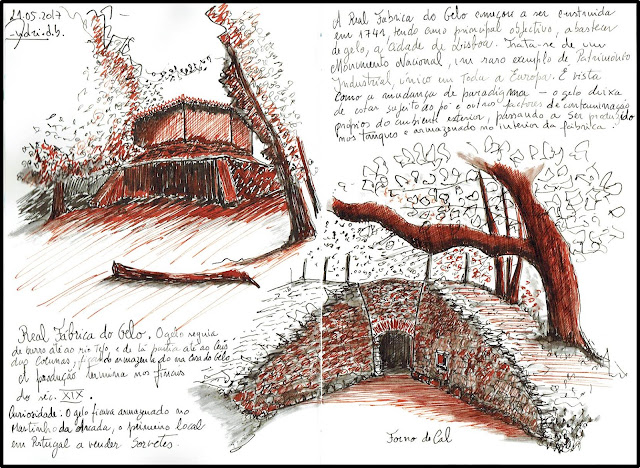 21.05.2017
A Real Fábrica do Gelo começou a ser construída
em 1741, tendo como principal objectivo, abastecer
de gelo, a cidade de Lisboa. Trata-se de um
Monumento Nacional, um raro exemplo de Património
Industrial, único em toda a Europa. É vista
como a mudança de paradigma - o gelo deixa
de estar sujeito ao pó e outros factores de contaminação
próprios do ambiente exterior, passando a ser produzido
nos tanques e armazenado no interior da fábrica.
Real Fábrica do Gelo. O gelo seguia
de burro até ao rio Tejo e de lá partia até ao Cais
das Colunas, ficando armazenado na Casa do Gelo
A produção termina nos finais
do séc. XIX.
Curiosidade: O gelo ficava armazenado no
Martinho da Arcada, o primeiro local
em Portugal a vender Sorvetes.
Forno de Cal